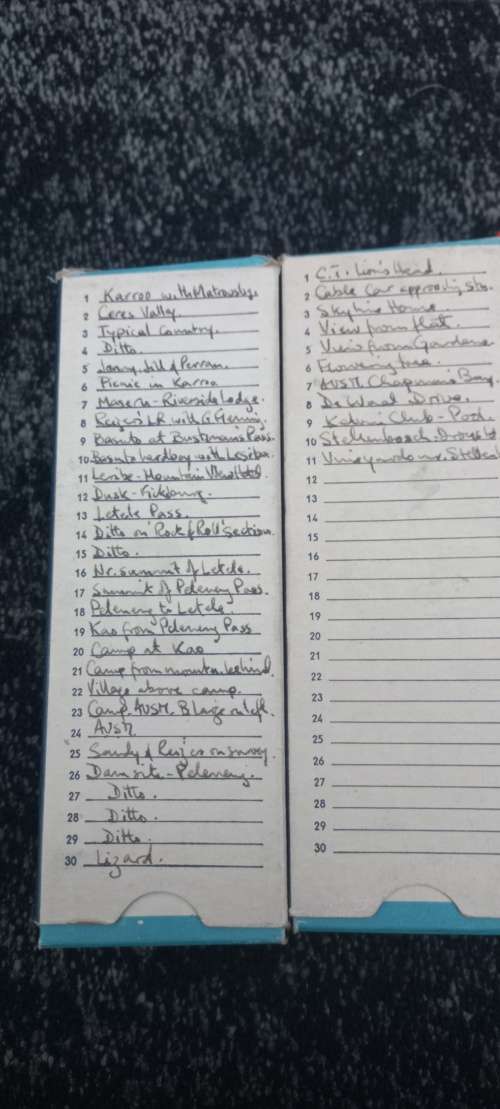 1 Karroo with Matroosbg.
2 Ceres Valley.
3 Typical Country.
4 Ditto.
5 Jenny, Jill & Perran.
6 Picnic in Karroo
7 Maseru - Riverside Lodge.
8 LR with G
9 Basuto at Bushmans Pass.
10 Basuto herdboy with Lesiba.
11 Leribe - Mountain View Hotel.
12 Dusk -
13 Letele Pass.
14 Ditto on 'Rock & Roll' section.
15 Ditto.
16 Nr. summit of Letele.
17 Summit of Pelaneng Pass.
18 Pelaneng to Letele.
19 Kao from Pelaneng Pass
20 Camp at Kao
21 Camp from mountn. behind.
22 Village above camp.
23 Camp. AVSM. B large on left.
24 AVSM
25 Sandy & on survey.
26 Dam site - Pelaneng.
27 Ditto.
28 Ditto.
29 Ditto.
30 Lizard.
1 C.T. Lion's Head.
2 Cable Car approaching stn.
3 Skyline Home
4 View from flat.
5 View from Gardens
6 Flowering tree.
7 AVSM. Chapman's Bay.
8 De Waal Drive.
9 Kelvin Club - Pool.
10 Stellenbosch.
11 Vineyard nr. Stellenb
12
13
14
15
16
17
18
19
20
21
22
23
24
25
26
27
28
29
30